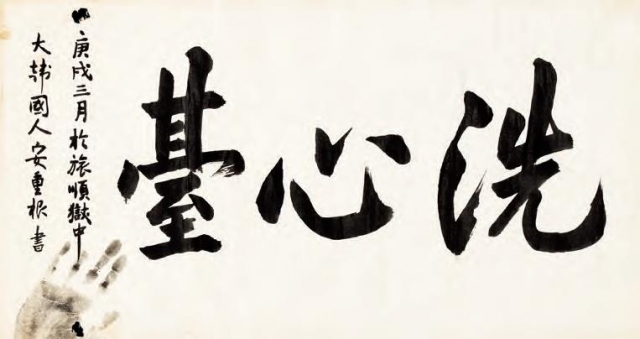 洗心臺
庚戌三月於旅順獄中
大韓國人安重根書